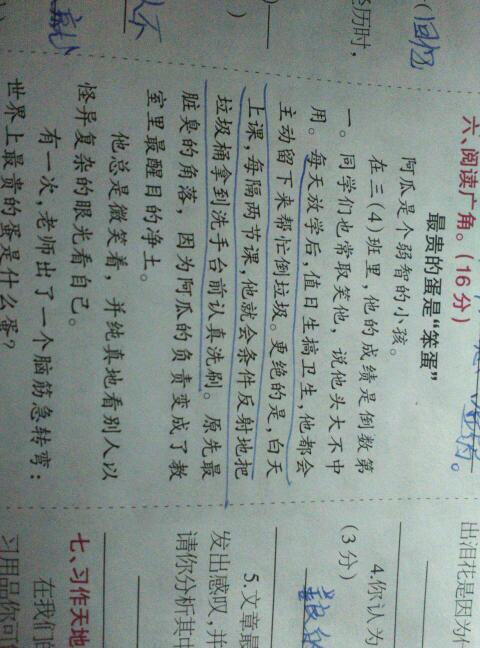 (回忆
经历时,
)
六、阅读广角。(16分)
最贵的蛋是“笨蛋”
阿瓜是个弱智的小孩。
在三(4)班里,他的成绩是倒数第
一。同学们也常取笑他,说他头大不中
用。每天放学后,值日生搞卫生,他都会
主动留下来帮忙倒垃圾。更绝的是,白天
上课,每隔两节课,他就会条件反射地把
垃圾桶拿到洗手台前认真洗刷。原先最
脏臭的角落,因为阿瓜的负责变成了教
室里最醒目的净土。
他总是微笑着,并纯真地看别人以
怪异复杂的眼光看自己。
有一次,老师出了一个脑筋急转弯:
世界上最贵的蛋是什么蛋?
出泪花是因为什
4.你认为
(3分)
5.文章最
发出感叹,并
请你分析其中
七、习作天地
在我们的
习用品你可